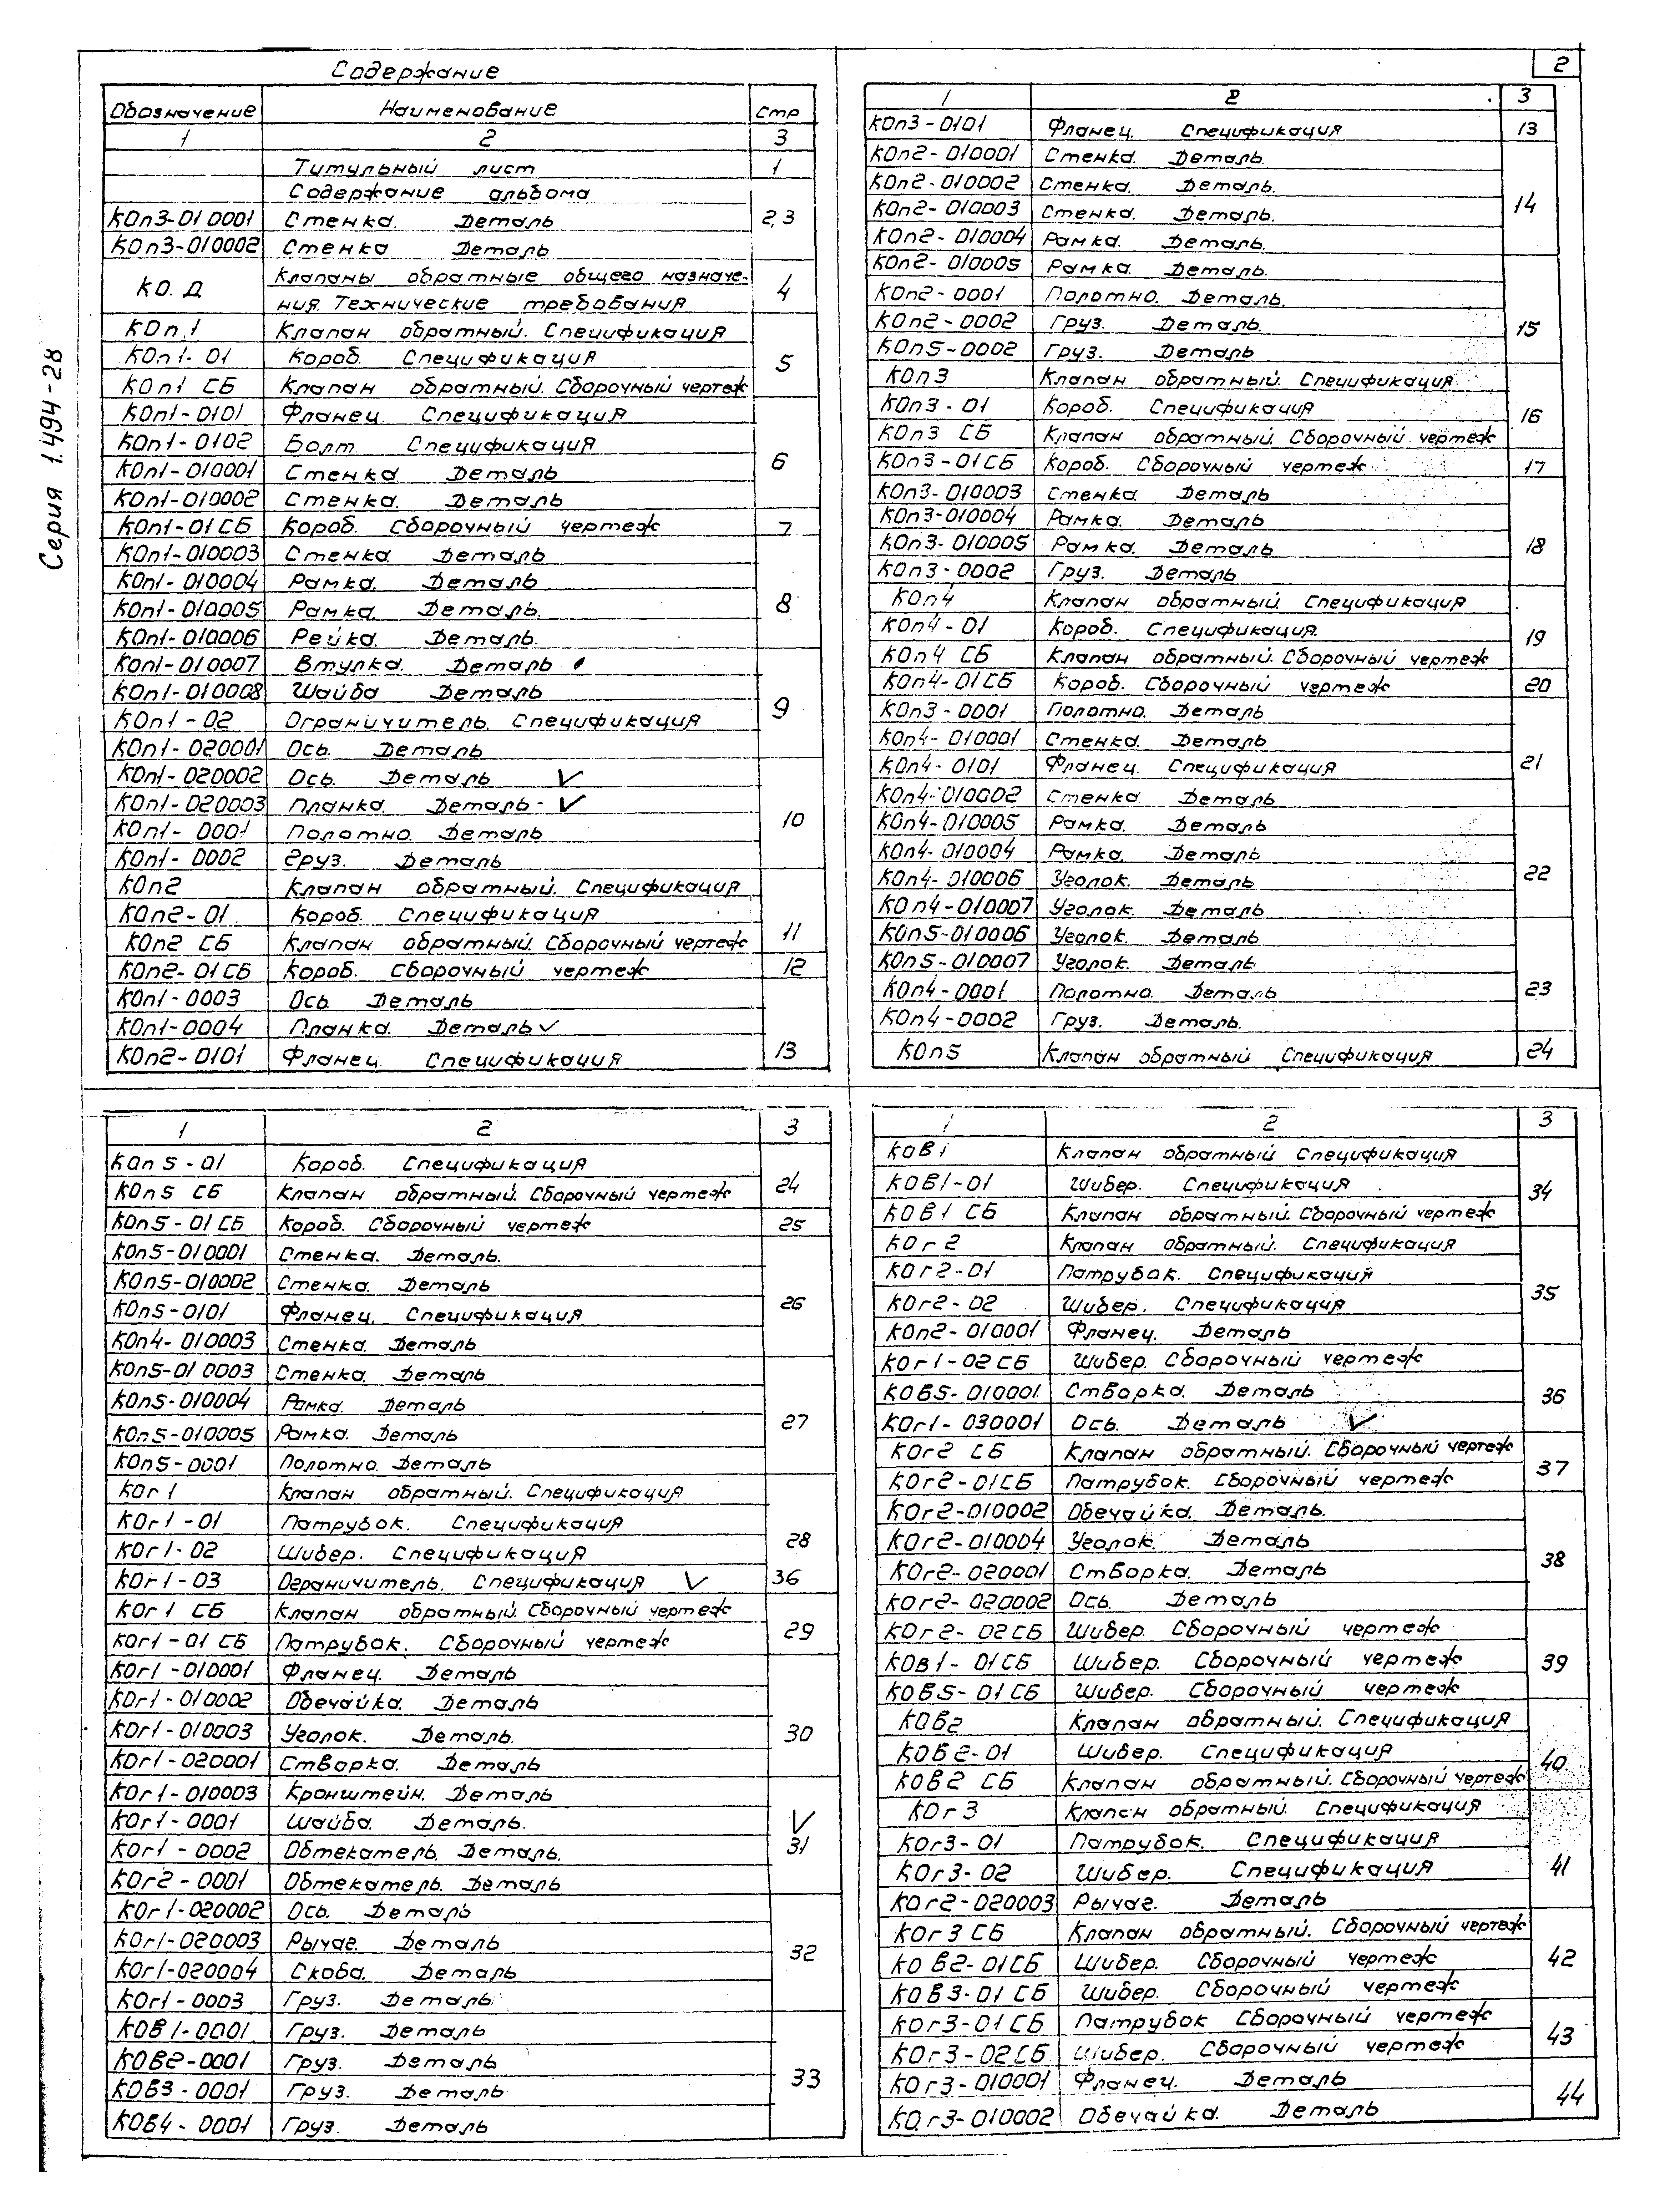 Серия 1.494-28
2
Содержание
Обозначение Наименование Стр
1 2 3
Титульный лист 1
Содержание альбома
КОп3-010001 Стенка. Деталь 2,3
КОп3-010002 Стенка Деталь
КО. Д Клапаны обратные общего назначе-
ния. Технические требования 4
КОп.1 Клапан обратный. Спецификация
КОп1-01 Короб. Спецификация 5
КОп1 СБ Клапан обратный. Сборочный чертеж
КОп1-0101 Фланец. Спецификация
КОп1-0102 Болт. Спецификация
КОп1-010001 Стенка. Деталь 6
КОп1-010002 Стенка. Деталь
КОп1-01СБ Короб. Сборочный чертеж 7
КОп1-010003 Стенка. Деталь
КОп1-010004 Рамка. Деталь
КОп1-010005 Рамка. Деталь. 8
КОп1-010006 Рейка. Деталь.
КОп1-010007 Втулка. Деталь
КОп1-010008 Шайба Деталь
КОп1-02 Ограничитель. Спецификация 9
КОп1-020001 Ось. Деталь
КОп1-020002 Ось. Деталь ✓
КОп1-020003 Планка. Деталь- ✓
КОп1-0001 Полотно. Деталь 10
КОп1-0002 Груз. Деталь
КОп2 Клапан обратный. Спецификация
КОп2-01 Короб. Спецификация
КОп2 СБ Клапан обратный. Сборочный чертеж 11
КОп2-01СБ Короб. Сборочный чертеж 12
КОп1-0003 Ось Деталь
КОп1-0004 Планка. Деталь ✓
КОп2-0101 Фланец Спецификация 13
1 2 3
КОп3-0101 Фланец. Спецификация 13
КОп2-010001 Стенка. Деталь.
КОп2-010002 Стенка. Деталь.
КОп2-010003 Стенка. Деталь. 14
КОп2-010004 Рамка. Деталь.
КОп2-010005 Рамка. Деталь.
КОп2-0001 Полотно. Деталь.
КОп2-0002 Груз. Деталь. 15
КОп5-0002 Груз. Деталь
КОп3 Клапан обратный. Спецификация
КОп3-01 Короб. Спецификация 16
КОп3 СБ Клапан обратный. Сборочный чертеж
КОп3-01СБ Короб. Сборочный чертеж 17
КОп3-010003 Стенка Деталь
КОп3-010004 Рамка. Деталь
КОп3-010005 Рамка. Деталь 18
КОп3-0002 Груз. Деталь
КОп4 Клапан обратный. Спецификация
КОп4-01 Короб. Спецификация. 19
КОп4 СБ Клапан обратный. Сборочный чертеж
КОп4-01СБ Короб. Сборочный чертеж 20
КОп3-0001 Полотно. Деталь
КОп4-010001 Стенка. Деталь
КОп4-0101 Фланец. Спецификация 21
КОп4-010002 Стенка. Деталь
КОп4-010005 Рамка. Деталь
КОп4-010004 Рамка. Деталь
КОп4-010006 Уголок. Деталь 22
КОп4-010007 Уголок. Деталь
КОп5-010006 Уголок. Деталь
КОп5-010007 Уголок. Деталь
КОп4-0001 Полотно. Деталь 23
КОп4-0002 Груз. Деталь.
КОп5 Клапан обратный Спецификация 24
1 2 3
КОп5-01 Короб. Спецификация
КОп5 СБ Клапан обратный. Сборочный чертеж 24
КОп5-01СБ Короб. Сборочный чертеж 25
КОп5-010001 Стенка. Деталь.
КОп5-010002 Стенка. Деталь
КОп5-0101 Фланец. Спецификация 26
КОп4-010003 Стенка. Деталь
КОп5-010003 Стенка. Деталь
КОп5-010004 Рамка. Деталь
КОп5-010005 Рамка. Деталь 27
КОп5-0001 Полотно. Деталь
КОг1 Клапан обратный. Спецификация
КОг1-01 Патрубок. Спецификация
КОг1-02 Шибер. Спецификация 28
КОг1-03 Ограничитель. Спецификация ✓ 36
КОг1 СБ Клапан обратный. Сборочный чертеж
КОг1-01 СБ Патрубок. Сборочный чертеж 29
КОг1-010001 Фланец. Деталь
КОг1-010002 Обечайка. Деталь
КОг1-010003 Уголок. Деталь. 30
КОг1-020001 Створка. Деталь
КОг1-010003 Кронштейн. Деталь
КОг1-0001 Шайба. Деталь. ✓
КОг1-0002 Обтекатель. Деталь. 31
КОг2-0001 Обтекатель. Деталь
КОг1-020002 Ось. Деталь
КОг1-020003 Рычаг. Деталь
КОг1-020004 Скоба. Деталь 32
КОг1-0003 Груз. Деталь
КОВ1-0001 Груз. Деталь
КОВ2-0001 Груз. Деталь
КОВ3-0001 Груз. Деталь 33
КОВ4-0001 Груз. Деталь
1 2 3
КОВ1 Клапан обратный Спецификация
КОВ1-01 Шибер. Спецификация 34
КОВ1 СБ Клапан обратный. Сборочный чертеж
КОг2 Клапан обратный. Спецификация
КОг2-01 Патрубок. Спецификация
КОг2-02 Шибер. Спецификация 35
КОп2-010001 Фланец. Деталь
КОг1-02СБ Шибер. Сборочный чертеж
КОВ5-010001 Створка. Деталь 36
КОг1-030001 Ось. Деталь ✓
КОг2 СБ Клапан обратный. Сборочный чертеж
КОг2-01СБ Патрубок. Сборочный чертеж 37
КОг2-010002 Обечайка. Деталь.
КОг2-010004 Уголок. Деталь
КОг2-020001 Створка. Деталь 38
КОг2-020002 Ось. Деталь
КОг2-02СБ Шибер. Сборочный чертеж
КОВ1-01СБ Шибер. Сборочный чертеж 39
КОВ5-01СБ Шибер. Сборочный чертеж
КОВ2 Клапан обратный. Спецификация
КОВ2-01 Шибер. Спецификация 40
КОВ2 СБ Клапан обратный. Сборочный чертеж
КОг3 Клапан обратный. Спецификация
КОг3-01 Патрубок. Спецификация
КОг3-02 Шибер. Спецификация 41
КОг2-020003 Рычаг. Деталь
КОг3 СБ Клапан обратный. Сборочный чертеж
КОВ2-01СБ Шибер. Сборочный чертеж 42
КОВ3-01 СБ Шибер. Сборочный чертеж
КОг3-01СБ Патрубок Сборочный чертеж
КОг3-02СБ Шибер. Сборочный чертеж 43
КОг3-010001 Фланец. Деталь
КОг3-010002 Обечайка. Деталь 44